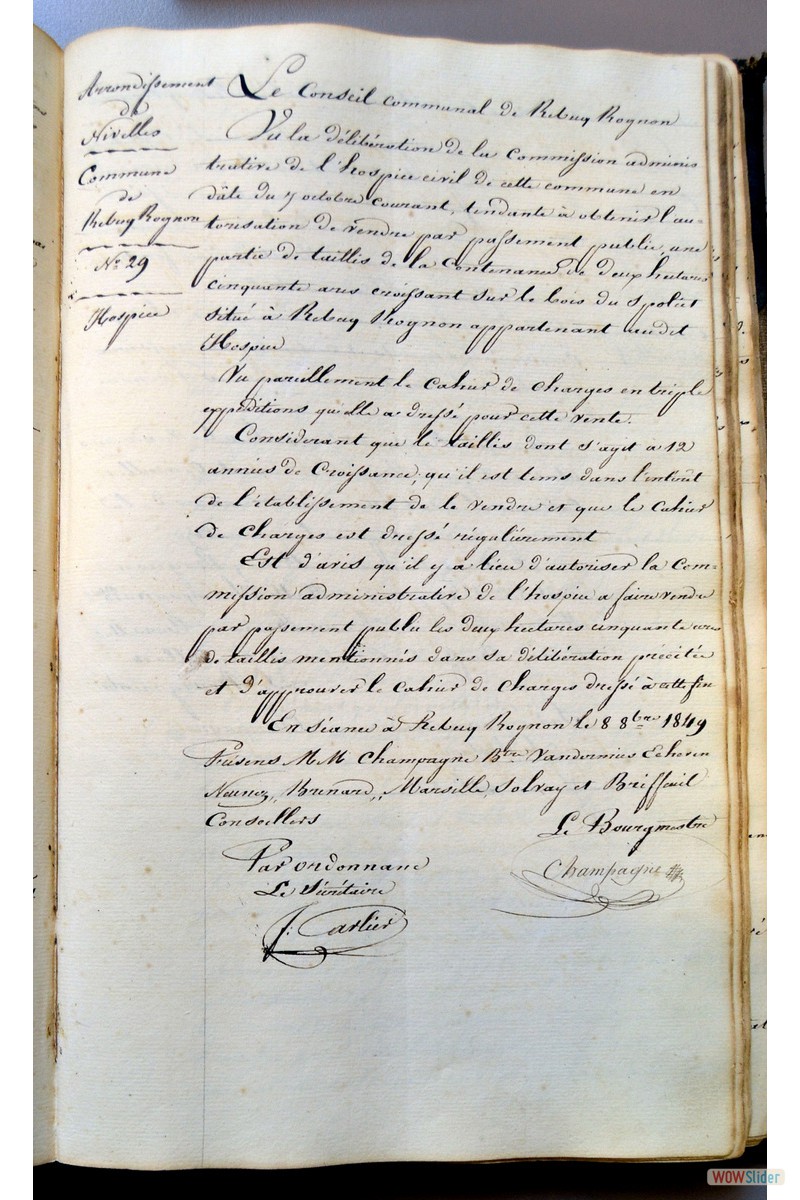 Arrondissement
de
Nivelles
Commune
de
Rebecq Rognon
N° 29
Hospice
Le Conseil communal de Rebecq Rognon
Vu la délibération de la Commission adminis
trative de l'hospice civil de cette commune en
date du 7 octobre courant, tendante à obtenir l'au-
torisation de vendre par passement public, une
partie de taillis de la Contenance de deux hectares
cinquante ares croissant sur le bois du
situé à Rebecq Rognon appartenant audit
Hospice
Vu pareillement le Cahier de Charges en triple
expéditions qu'elle a dressé pour cette vente.
Considérant que le taillis dont s'agit a 12
années de Croissance, qu'il est tems dans l'intérêt
de l'établissement de le vendre et que le Cahier
de Charges est dressé régulièrement
Est d'avis qu'il y a lieu d'autoriser la Com-
mission administrative de l'hospice a faire vendre
par passement public les deux hectares cinquante ares
de taillis mentionnés dans sa délibération précitée
et d'approuver le Cahier de Charges dressé à cette fin
En séance à Rebecq Rognon le 8 8bre 1849
Présens MM Champagne Vandormies
Brenard, Marsille, Solvay et Briffeuil
Conseillers
Le Bourgmestre
Par ordonnance
Le Secrétaire
Champagne
J: Carlier
WOWSlider